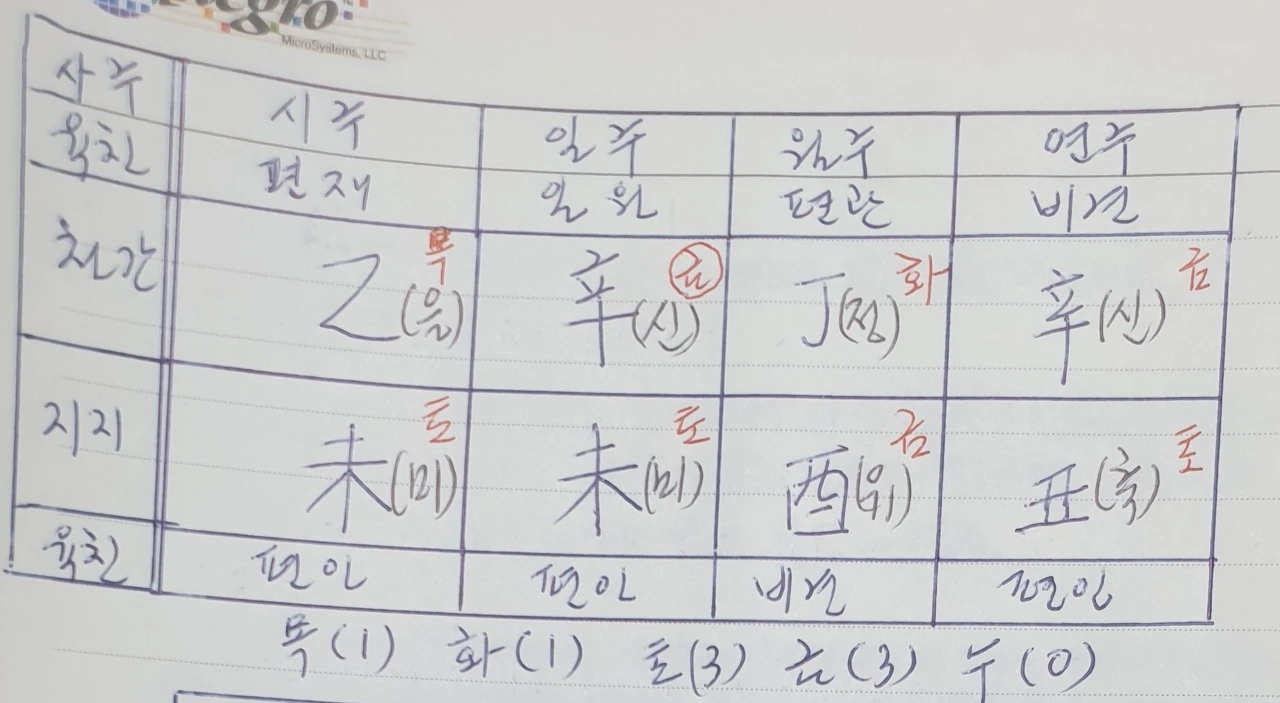 MicroSystems, LLC
사주 시주 일주 월주 연주
육친 편재 일원 편관 비견
천간 乙(을) 목 辛(신) 금 丁(정) 화 辛(신) 금
지지 未(미) 토 未(미) 토 酉(유) 금 丑(축) 토
육친 편인 편인 비견 편인
목(1) 화(1) 토(3) 금(3) 수(0)